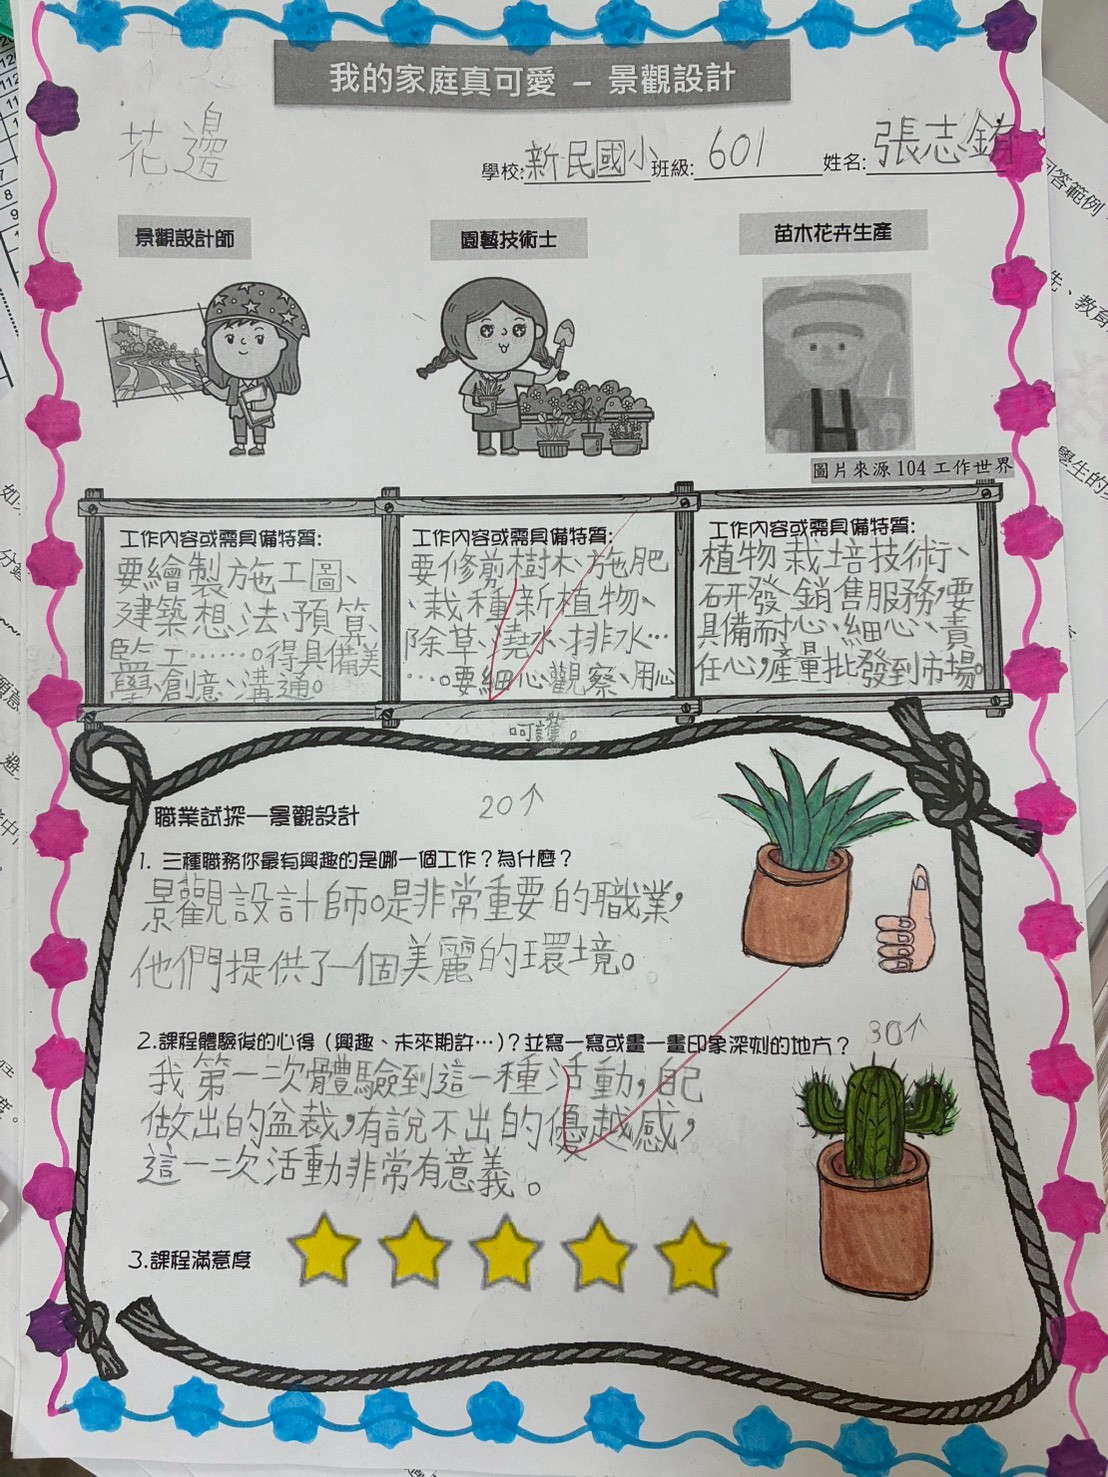 我的家庭真可愛 – 景觀設計
花邊
學校:新民國小班級:601 姓名:張志銪
景觀設計師
園藝技術士
苗木花卉生產
圖片來源 104 工作世界
工作內容或需具備特質:
要繪製施工圖、
建築想法、預算、
監工……。得具備美
學、創意、溝通。
工作內容或需具備特質:
要修剪樹木、施肥
、栽種新植物、
除草、澆水、排水…
…。要細心觀察、用心
呵護。
工作內容或需具備特質:
植物栽培技術、
研發、銷售服務,要
具備耐心、細心、責
任心,產量批發到市場。
職業試探—景觀設計
20↑
1. 三種職務你最有興趣的是哪一個工作?為什麼?
景觀設計師。是非常重要的職業,
他們提供了一個美麗的環境。
2.課程體驗後的心得(興趣、未來期許…)?並寫一寫或畫一畫印象深刻的地方?
30↑
我第一次體驗到這一種活動,自己
做出的盆栽,有說不出的優越感,
這一次活動非常有意義。
3.課程滿意度